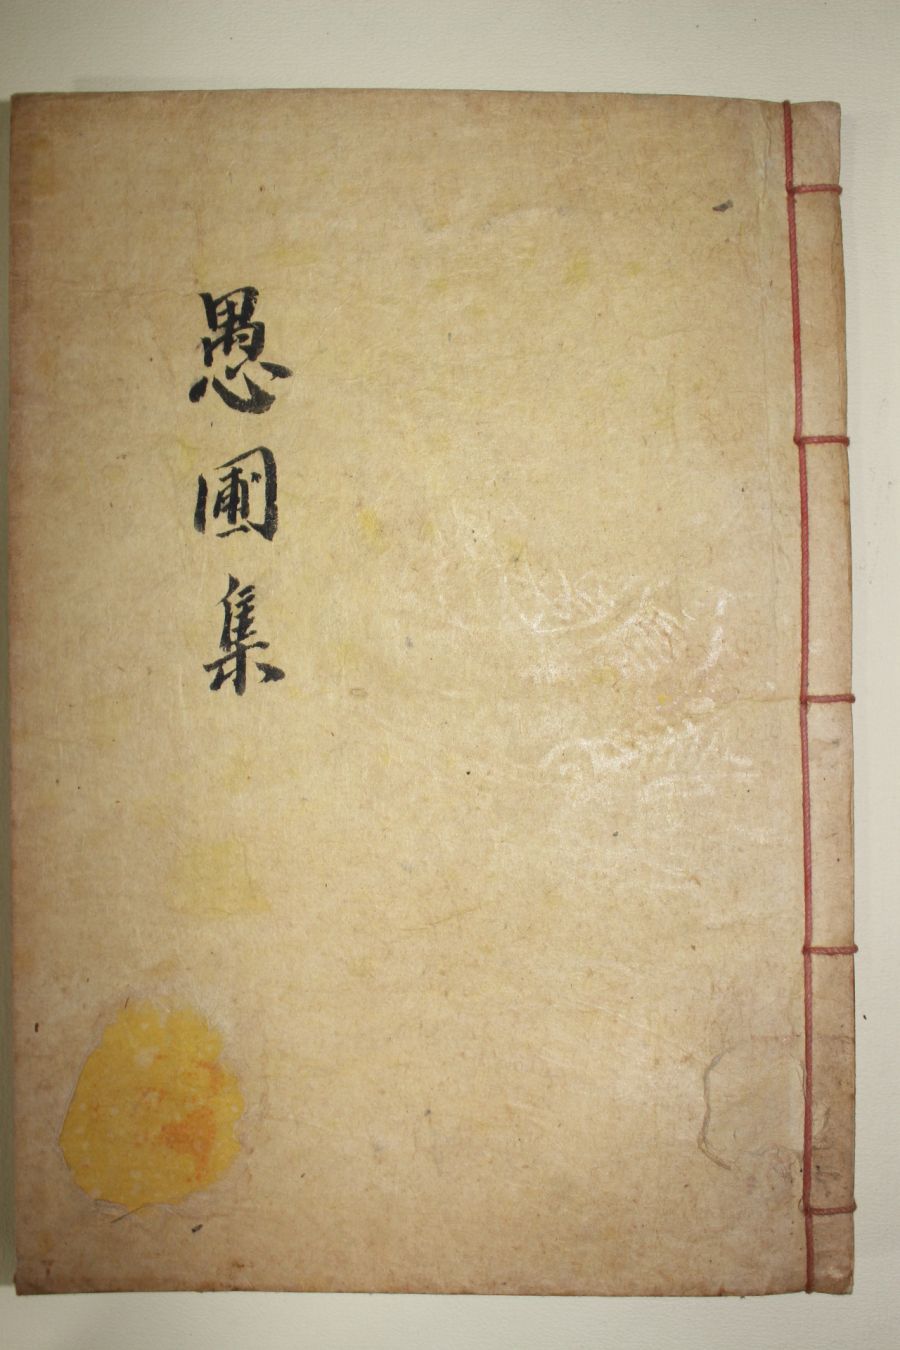 愚圃集